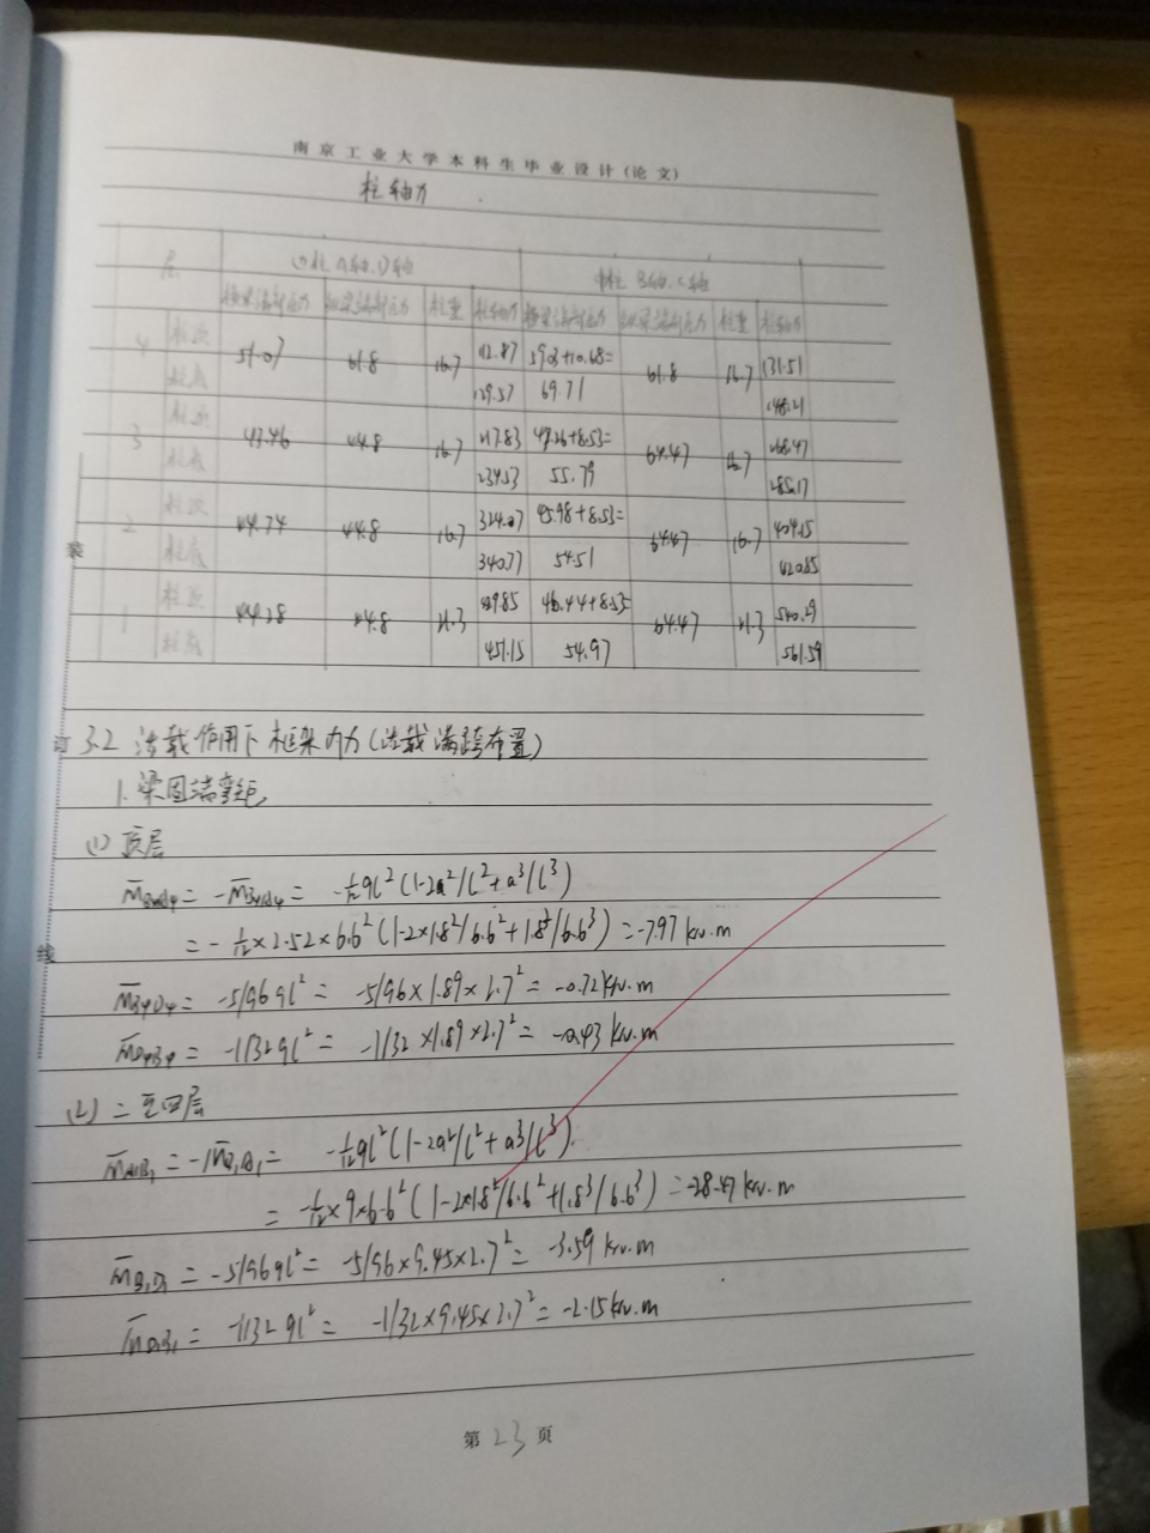 南京工业大学本科生毕业设计(论文)
柱轴力
层 边柱A轴、D轴 中柱B轴、C轴
横梁端部压力 纵梁端部压力 柱重 柱轴力 横梁端部压力 纵梁端部压力 柱重 柱轴力
4 柱顶 51.07 61.8 16.7 112.87 59.03+10.68= 61.8 16.7 131.51
柱底 129.57 69.71 148.21
3 柱顶 43.46 44.8 16.7 217.83 47.26+8.53= 64.47 16.7 268.47
柱底 234.53 55.79 285.17
2 柱顶 44.74 44.8 16.7 324.07 45.98+8.53= 64.47 16.7 404.15
柱底 340.77 54.51 420.85
1 柱顶 44.28 44.8 21.3 429.85 46.44+8.53= 64.47 21.3 540.29
柱底 451.15 54.97 561.59
装
订
线
3.2 活载作用下框架内力(活载满跨布置)
1. 梁固端弯矩
(1) 顶层
= -1/12ql²(1-2a²/l²+a³/l³)
= -1/12×2.52×6.6²(1-2×1.8²/6.6²+1.8³/6.6³)=-7.97 kN.m
= -5/96ql² = -5/96×1.89×2.7² = -0.72kN.m
= -1/32ql² = -1/32×1.89×2.7² = -0.43 kN.m
(2) 二至四层
= -1/12ql²(1-2a²/l²+a³/l³).
= -1/12×9×6.6²(1-2×1.8²/6.6²+1.8³/6.6³) = -28.47 kN.m
= -5/96ql² = -5/96×9.45×2.7² = -3.59 kN.m
= -1/32ql² = -1/32×9.45×2.7² = -2.15kN.m
第 23 页